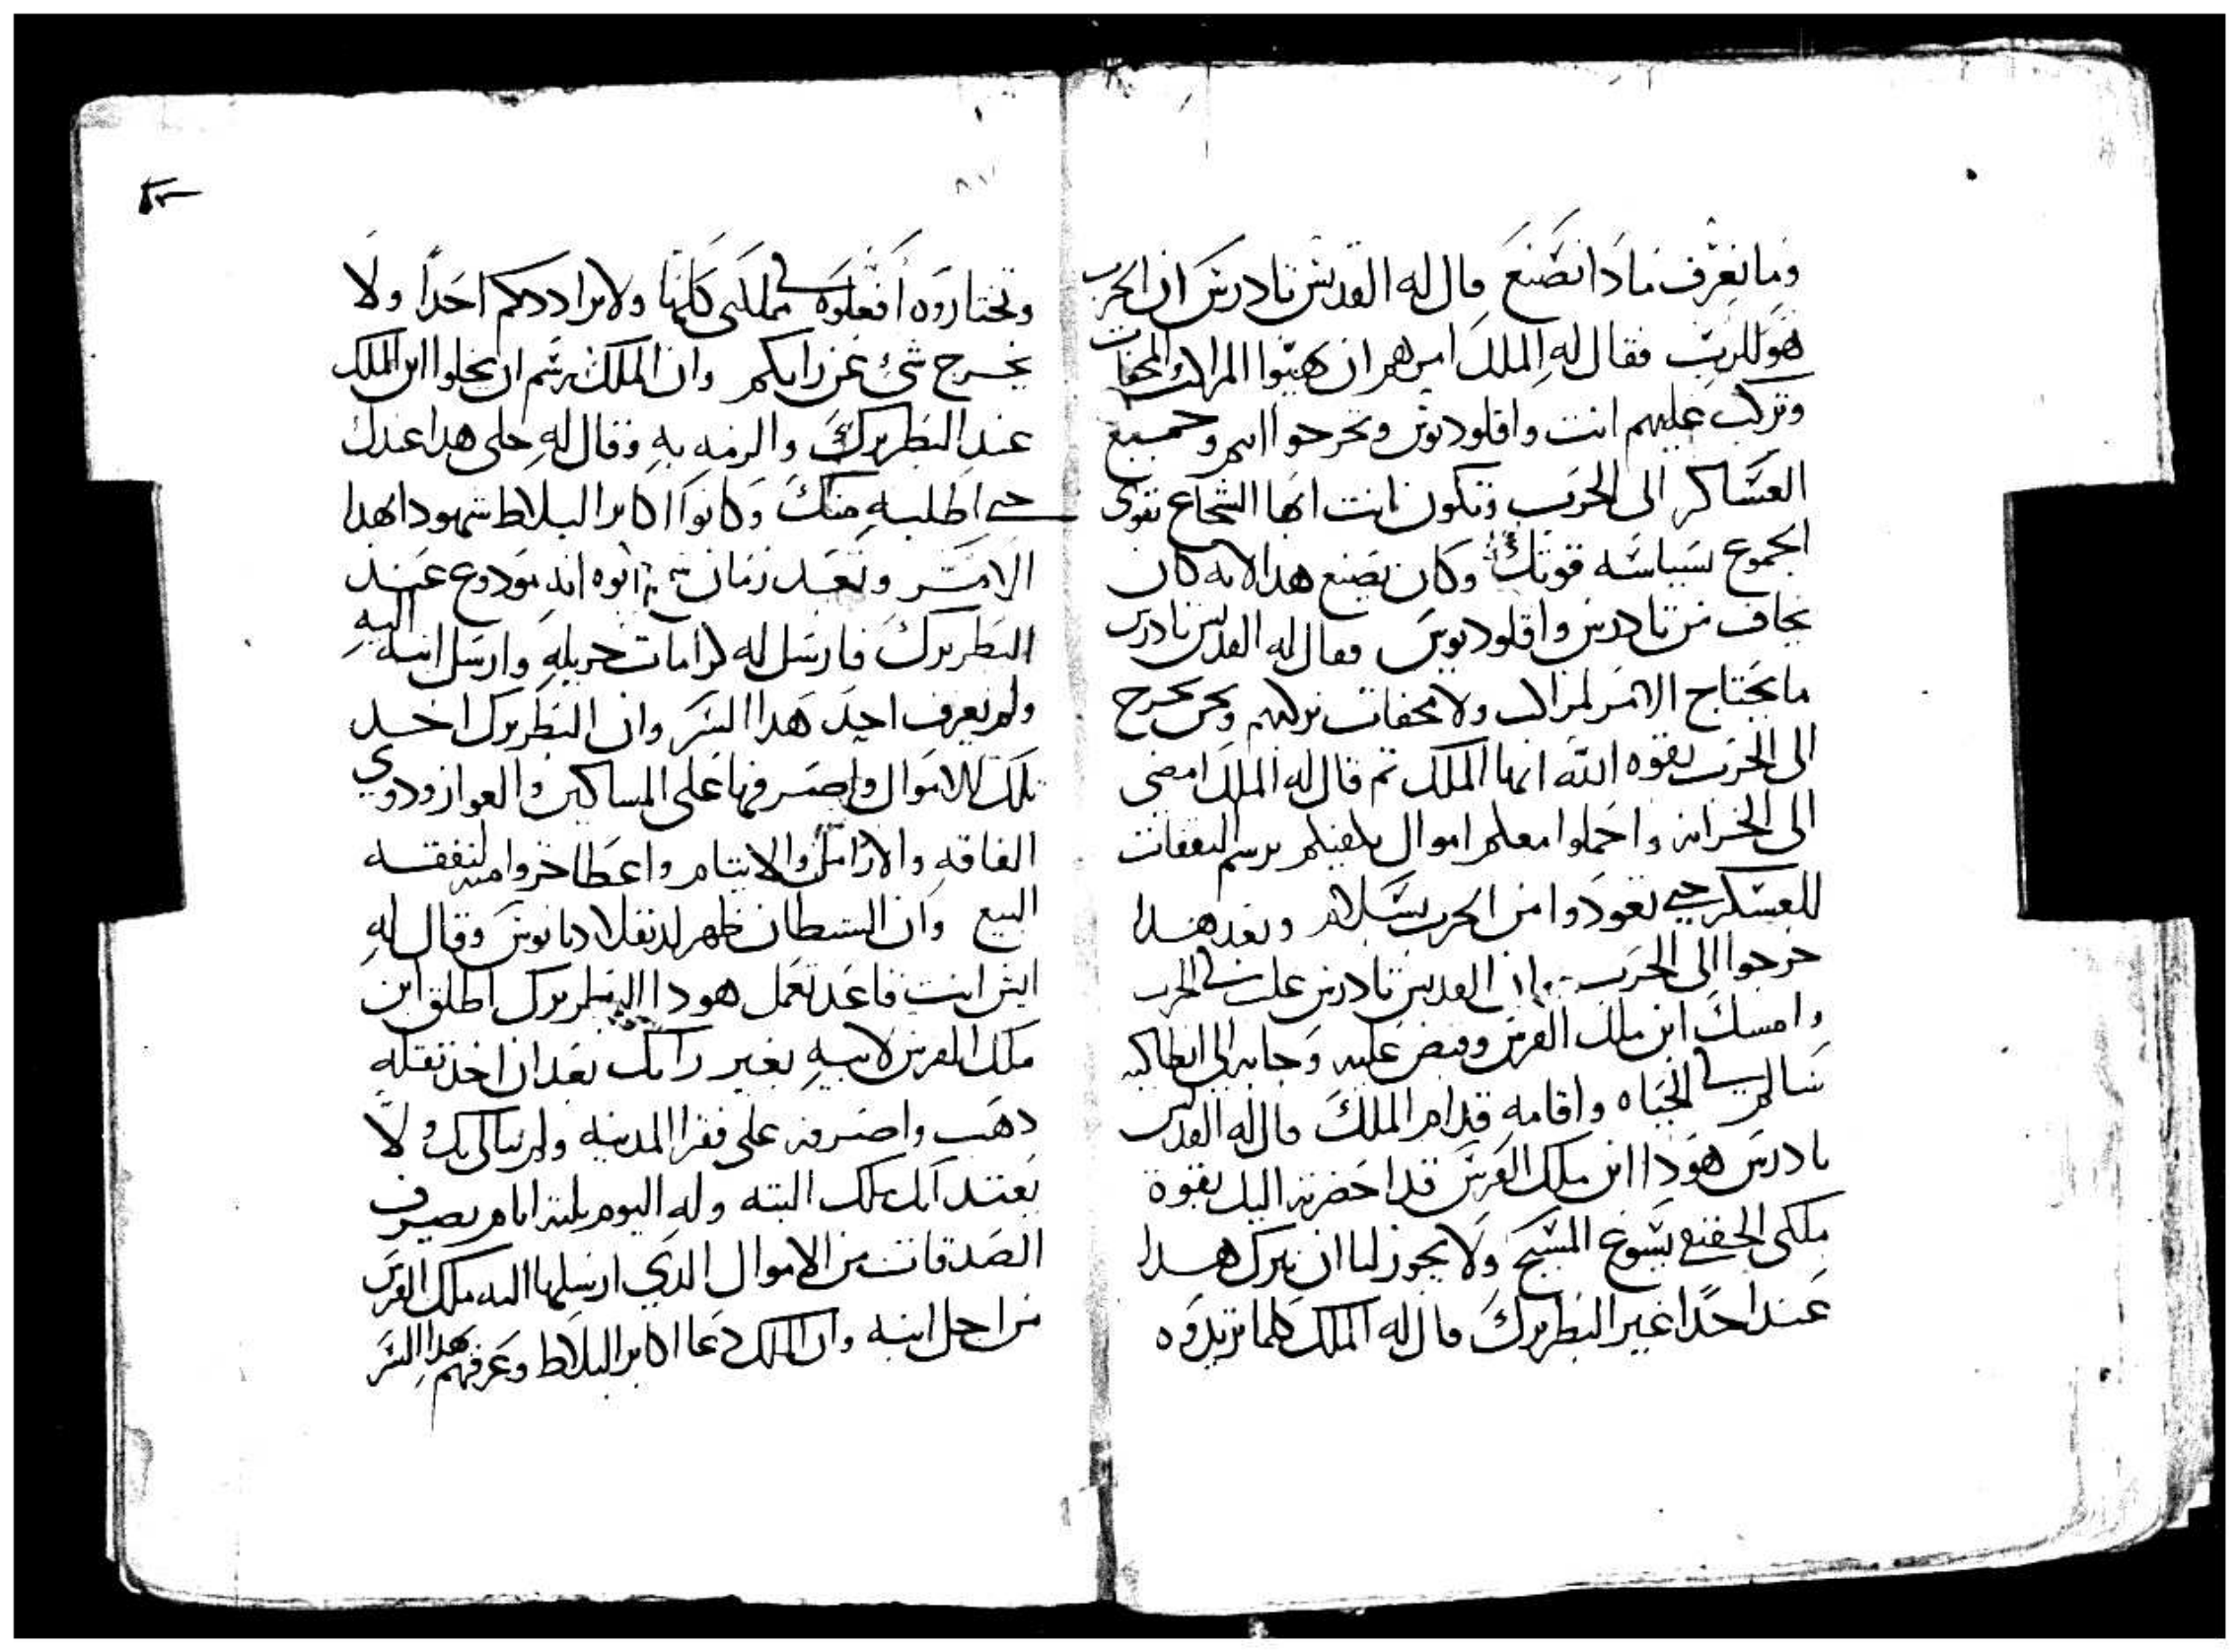 وما نعرف ماذا نصنع قال له القديس تادرس ان الحرب
هو للرب فقال له الملك امرهم ان يهيوا المراكب والمحفات
وتركب عليهم انت واقلوديوس وتخرجوا انتم وجميع
العساكر الى الحرب وتكون انت ايها الشجاع تقوى
الجموع بسياسه قوتك وكان يصنع هدا لانه كان
يخاف من تادرس واقلوديوس فقال له القديس تادرس
ما يحتاج الامر لمراكب ولا محفات نركبهم ونحن نخرج
الى الحرب بقوه الله ايها الملك تم قال له الملك امضى
الى الخزانه واحملوا معكم اموال يكفيكم برسم النفقات
للعسكر حتى تعودوا من الحرب بسلام وبعد هدا
خرجوا الى الحرب وان القديس تادرس غلب فى الحرب
وامسك ابن ملك الفرس وقبض عليه وجابه الى انطاكيه
سالم فى الحياه واقامه قدام الملك قال له القديس
تادرس هودا ابن ملك الفرس قد احضرته اليك بقوة
ملكى الحقيقى يسوع المسيح ولا يجوز لنا ان نترك هدا
عند احدا غير البطريرك قال له الملك كلما تريدوه
وتختاروه افعلوه فى مملكتى كلها ولا يراددكم احدا ولا
يخرج شئ عن رايكم وان الملك رسم ان يخلوا ابن الملك
عند البطريرك والزمه به وقال له خلى هدا عندك
حتى اطلبه منك وكانوا اكابر البلاط شهود ا بهدا
الامر وبعد زمان سمع ابوه انه مودوع عند
البطريرك فارسل له كرامات جزيله وارسل ابنه اليه
ولم يعرف احد هدا السر وان البطريرك اخد
تلك الاموال واصرفها على المساكين والعواز ودوي
الفاقه والارامل والايتام واعطا جزوا منه لنفقة
البيع وان الشيطان ظهر لدقلاديانوس وقال له
ايش انت قاعد تعمل هودا البطريرك اطلق ابن
ملك الفرس لابيه بغير رايك بعد ان اخد تقله
دهب واصرفه على فقرا المدينه ولم يبالى بك ولا
يعتد انك ملك البته وله اليوم تلته ايام يصرف
الصدقات من الاموال الدي ارسلها اليه ملك الفرس
من اجل ابنه وان الملك دعا اكابر البلاط وعرفهم هدا السر